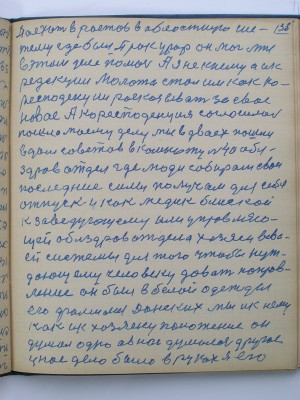 поехат в ростов в областную си-
тему где был Прокурор он мог мне
в этом деле помоч А я не к нему а к
редекции Молота стои им как ко-
респоденции расказыват за свое
новое А коресподенция согласилас
по моему делу мы в двоех пошли
в дом советов в комнату №40 обл-
здравотдел где люди собирали свои
последние силы получат для себя
отпуск и как медик бинской
к заведующему или управляю-
щей облздравотдела хозяен все-
ей системы для того чтобы нуж-
дающему человеку доват направ-
ление он был в белой одежде
его фамилия Данских мы к нему
как к хозяену положение он
думал одно а в нас думалось другое
у нас дело было в руках я его